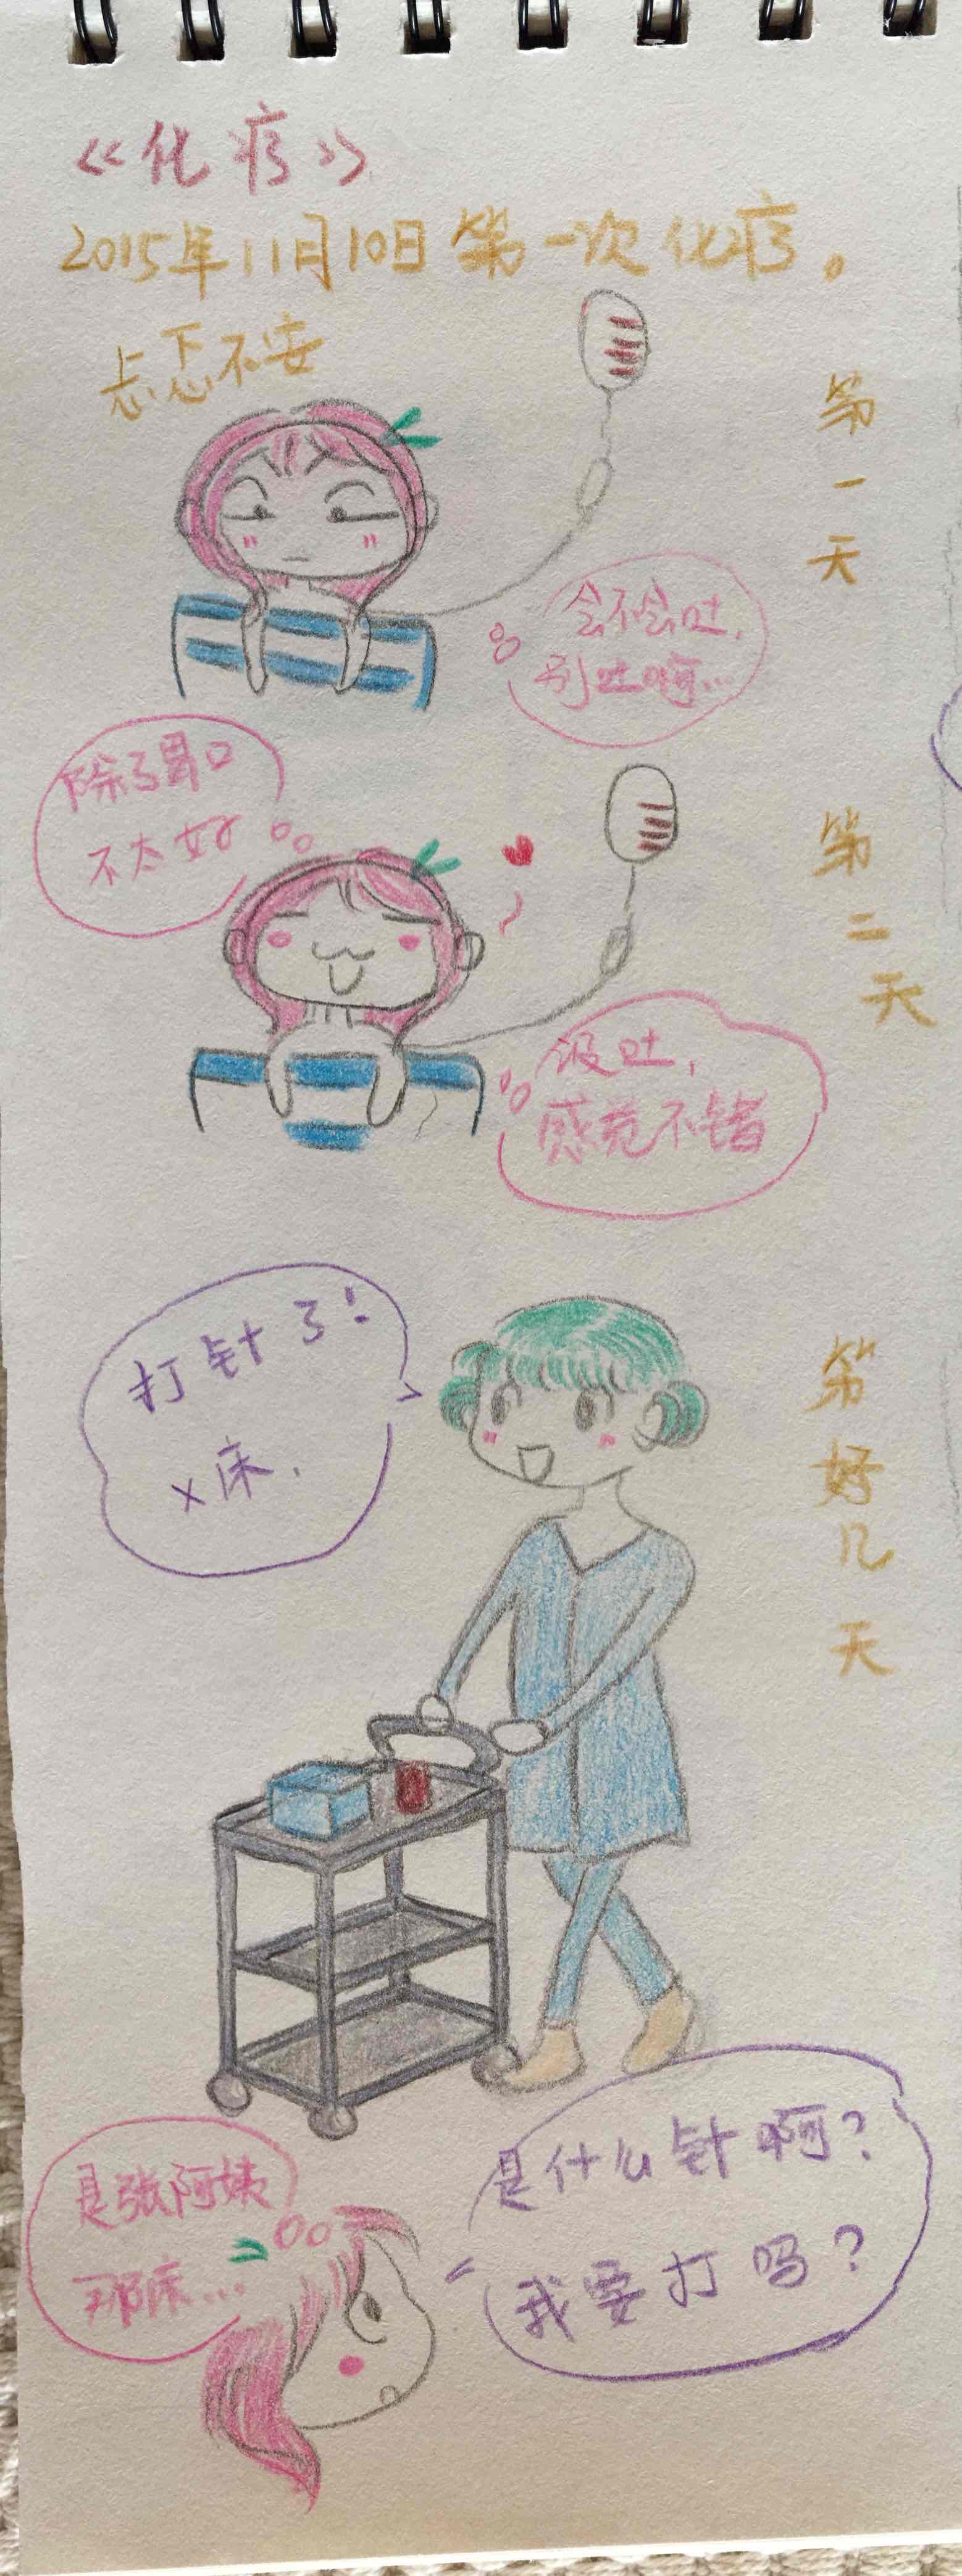 《化疗》
2015年11月10日第一次化疗。
忐忑不安
第一天
会不会吐,
别吐啊…
除了胃口
不太好
第二天
没吐,
感觉不错
打针了!
X床.
第好几天
是什么针啊?
我要打吗?
是张阿姨
那床…